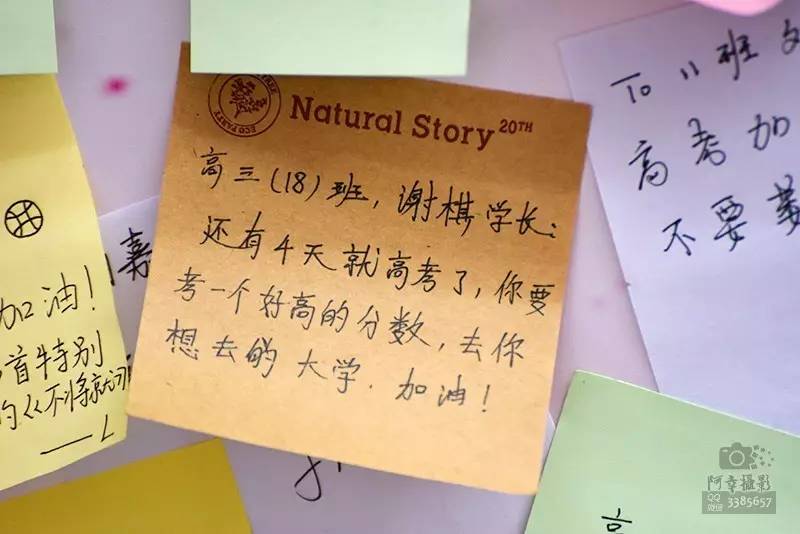 ECO PARTY
Natural Story 20TH
高三(18)班,谢棋学长:
还有4天就高考了,你要
考一个好高的分数,去你
想去的大学.加油!
To 11班
高考加
不要
嘉
加油!
首特别
的《不将就》
阿幸攝影
QQ
微信 3385657